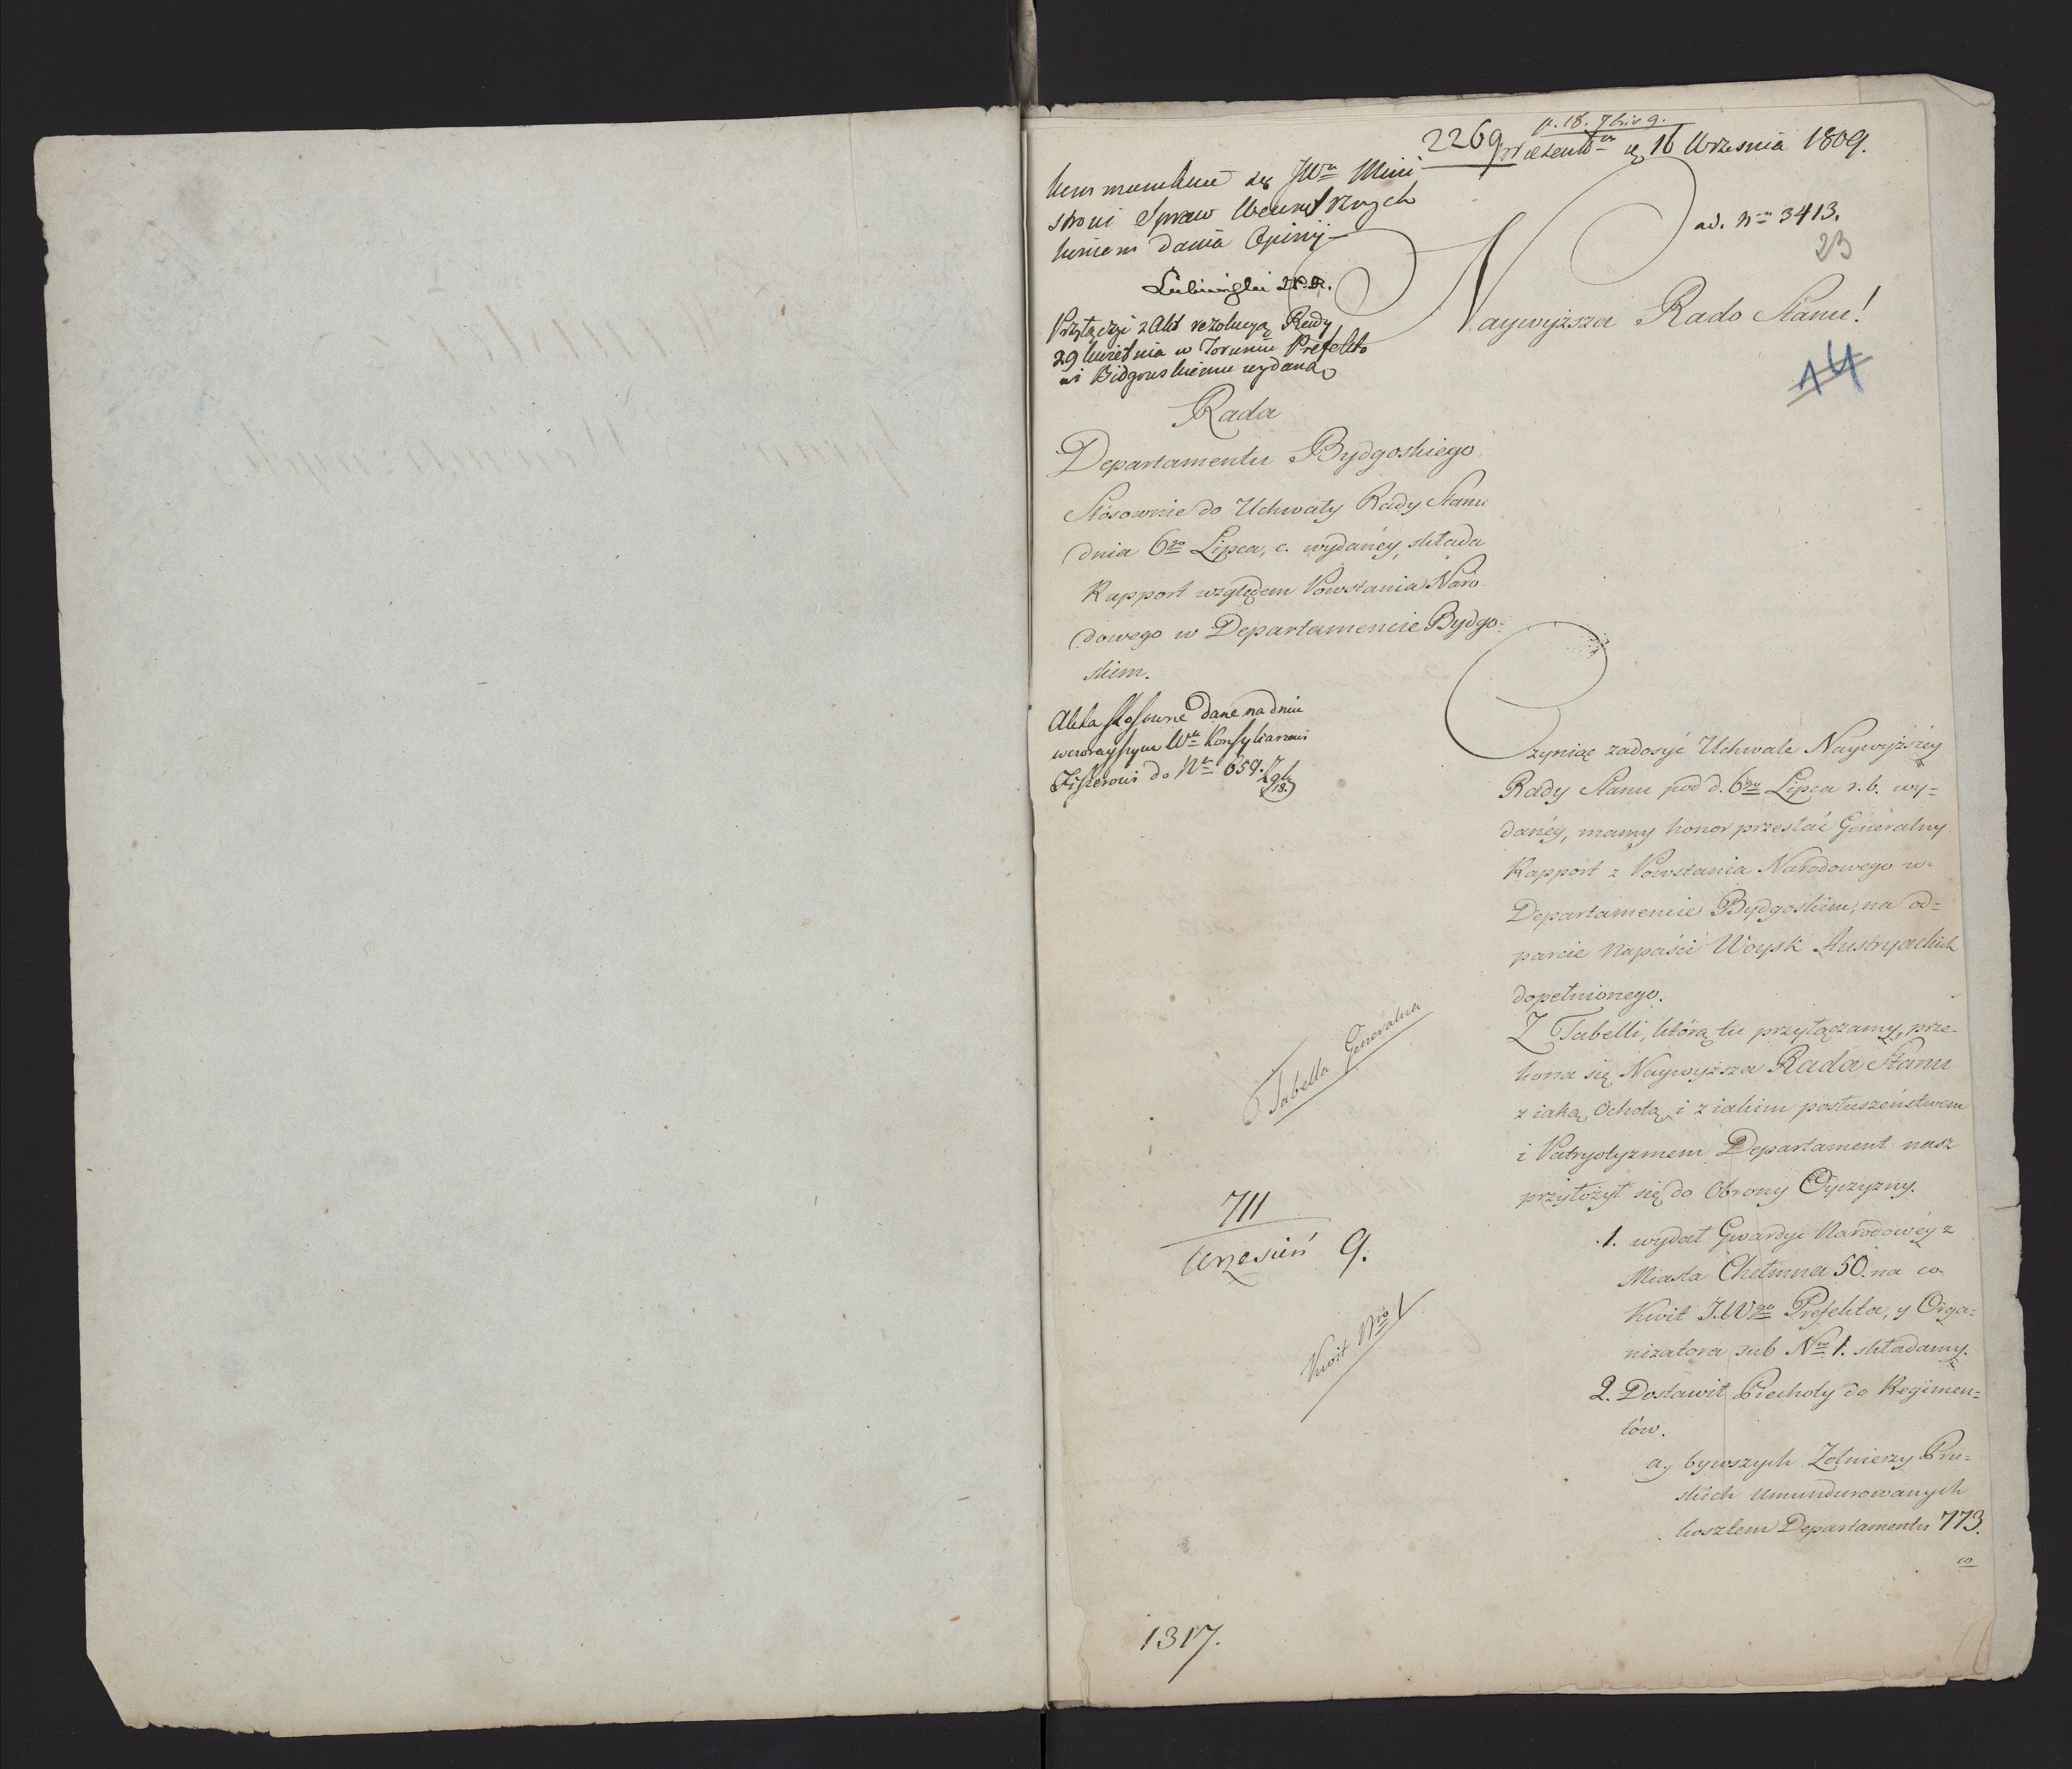 2269
p. 18. 7bris 9.
16 Września 1809.
ad. Nro 3413.
23
kommunikuie się JWu Mini
strowi Spraw Wewnętrznych
koniem dania Opinij
Lubieński
Przyłączyć z Akt rezolucyą Rady
29 kwietnia w Toruniu Prefekto
wi Bidgoskiemu wydaną
Naywyższa Rado Stanu!
14
Rada
Departamentu Bydgoskiego
Stósownie do Uchwały Rady Stanu
dnia 6go Lipca, c. wydanéy, składa
Rapport względem Powstania Naro
dowego w Departamencie Bydgo-
skiem.
Akta stosowne dane na dniu
wczorayszym Wu Konsyliarzowi
do Nru 659.
18.
Czyniąc zadosyć Uchwale Naywyższey
Rady Stanu pod d. 6go Lipca r. b. wy=
danéy, mamy honor przesłać Generalny
Rapport z Powstania Narodowego w
Departamencie Bydgoskim, na od=
parcie napaści Woysk Austryackich
dopełnionego.
Z Tabelli, którą tu przyłączamy, prze-
kona się Naywyższa Rada Stanu
z iaką Ochotą i z iakim posłuszeństwem
i Patryotyzmem Departament nasz
przyłożył się do Obrony Oyczyzny.
Tabella Generalna
711
Wrzesień 9.
1. wydał Gwardyi Narodowéy z
Miasta Chełmna 50. na co
Kwit J.Wgo Prefekta, y Orga=
nizatora sub Nro 1. składamy.
Kwit Nro 1
2. Dostawił Piechoty do Regimen=
tów.
a, bywszych Zołnierzy Pru=
skich umundurowanych
kosztem Departamentu 773.
co
1317.